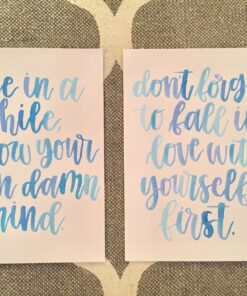 e in a
hile,
ow your
n damn
ind.
dont forg
to fall i
love with
yourself
first.